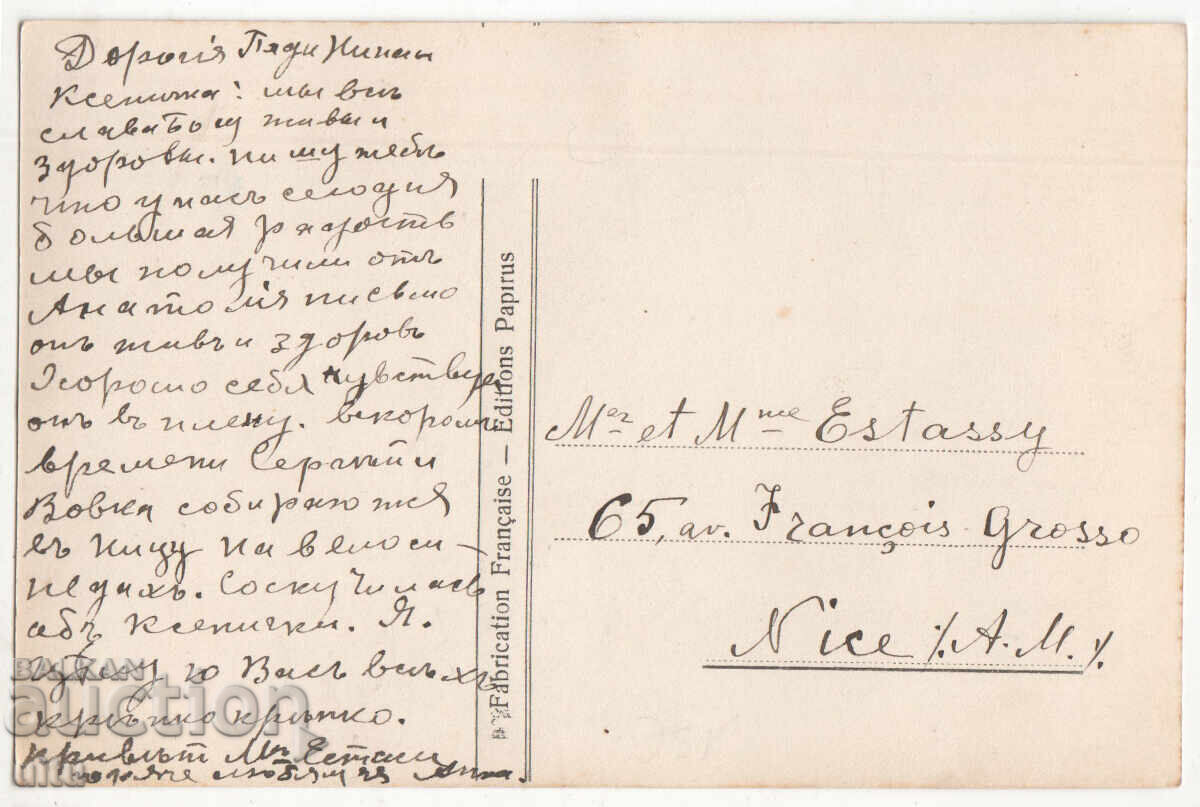 Дорогія Надя Нина и
Ксеничка! мы всѣ
слава Богу живы и
здоровы. пишу тебѣ
что у насъ сегодня
большая радость
мы получили отъ
Анатолія письмо
онъ живъ и здоровъ
Хорошо себя чувствуе
онъ въ плену. вскоромъ
времени Сергѣй и
Вовка собираются
въ ницу на велоси-
педахъ. Соскучилась
объ Ксенички. Я.
цѣлую Васъ всѣхъ
крѣпко крѣпко.
привѣтъ Mr Естаси
горяче любящая Анна.
Fabrication Française — Editions Papyrus
Mer et Mme Estassy
65, av. François Grosso
Nice /.A.M./.
BALKAN
auction